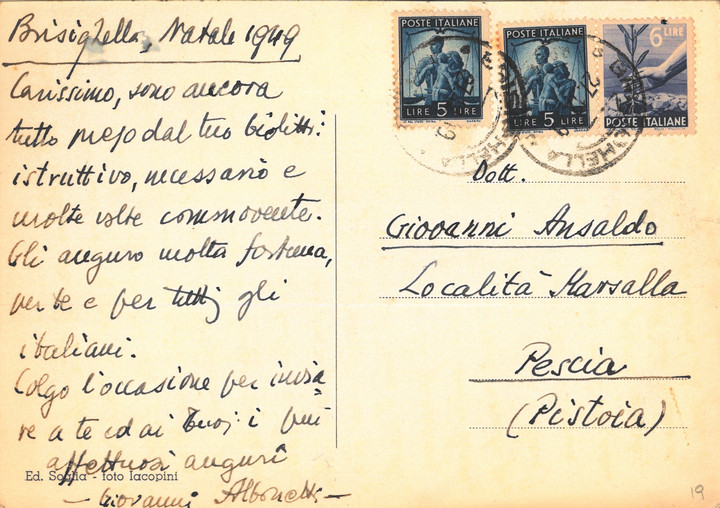 Brisighella, Natale 1949
Carissimo, sono ancora
tutto preso dal tuo Giolitti:
istruttivo, necessario e
molte volte commovente.
Gli auguro molta fortuna,
per te e per tutti gli
italiani.
Colgo l'occasione per invia-
re a te ed ai Tuoi i più
affettuosi auguri
- Giovanni
Ed. Soglia - foto Iacopini
POSTE ITALIANE
LIRE 5 LIRE
POSTE ITALIANE
LIRE 5 LIRE
6 LIRE
POSTE ITALIANE
Dott.
Giovanni Ansaldo
Località Marsalla
Pescia
(Pistoia)
19